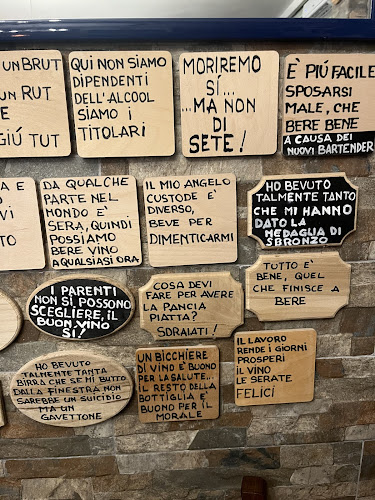 UN BRUT
UN RUT
E
GIÚ TUT
QUI NON SIAMO
DIPENDENTI
DELL'ALCOOL
SIAMO I
TITOLARI
MORIREMO
SÍ...
...MA NON
DI
SETE!
È PIÚ FACILE
SPOSARSI
MALE, CHE
BERE BENE
A CAUSA DEI
NUOVI BARTENDER
A E
VI
TO
DA QUALCHE
PARTE NEL
MONDO E'
SERA, QUINDI
POSSIAMO
BERE VINO
A QUALSIASI ORA
IL MIO ANGELO
CUSTODE È
DIVERSO,
BEVE PER
DIMENTICARMI
HO BEVUTO
TALMENTE TANTO
CHE MI HANNO
DATO LA
MEDAGLIA DI
SBRONZO
I PARENTI
NON SI POSSONO
SCEGLIERE, IL
BUON VINO
SI!
COSA DEVI
FARE PER AVERE
LA PANCIA
PIATTA?
SDRAIATI!
TUTTO E'
BENE, QUEL
CHE FINISCE A
BERE
HO BEVUTO
TALMENTE TANTA
BIRRA CHE SE MI BUTTO
DALLA FINESTRA NON
SAREBBE UN SUICIDIO
MA UN
GAVETTONE
UN BICCHIERE
DI VINO E' BUONO
PER LA SALUTE...
IL RESTO DELLA
BOTTIGLIA E'
BUONO PER IL
MORALE
IL LAVORO
RENDE I GIORNI
PROSPERI
IL VINO
LE SERATE
FELICI